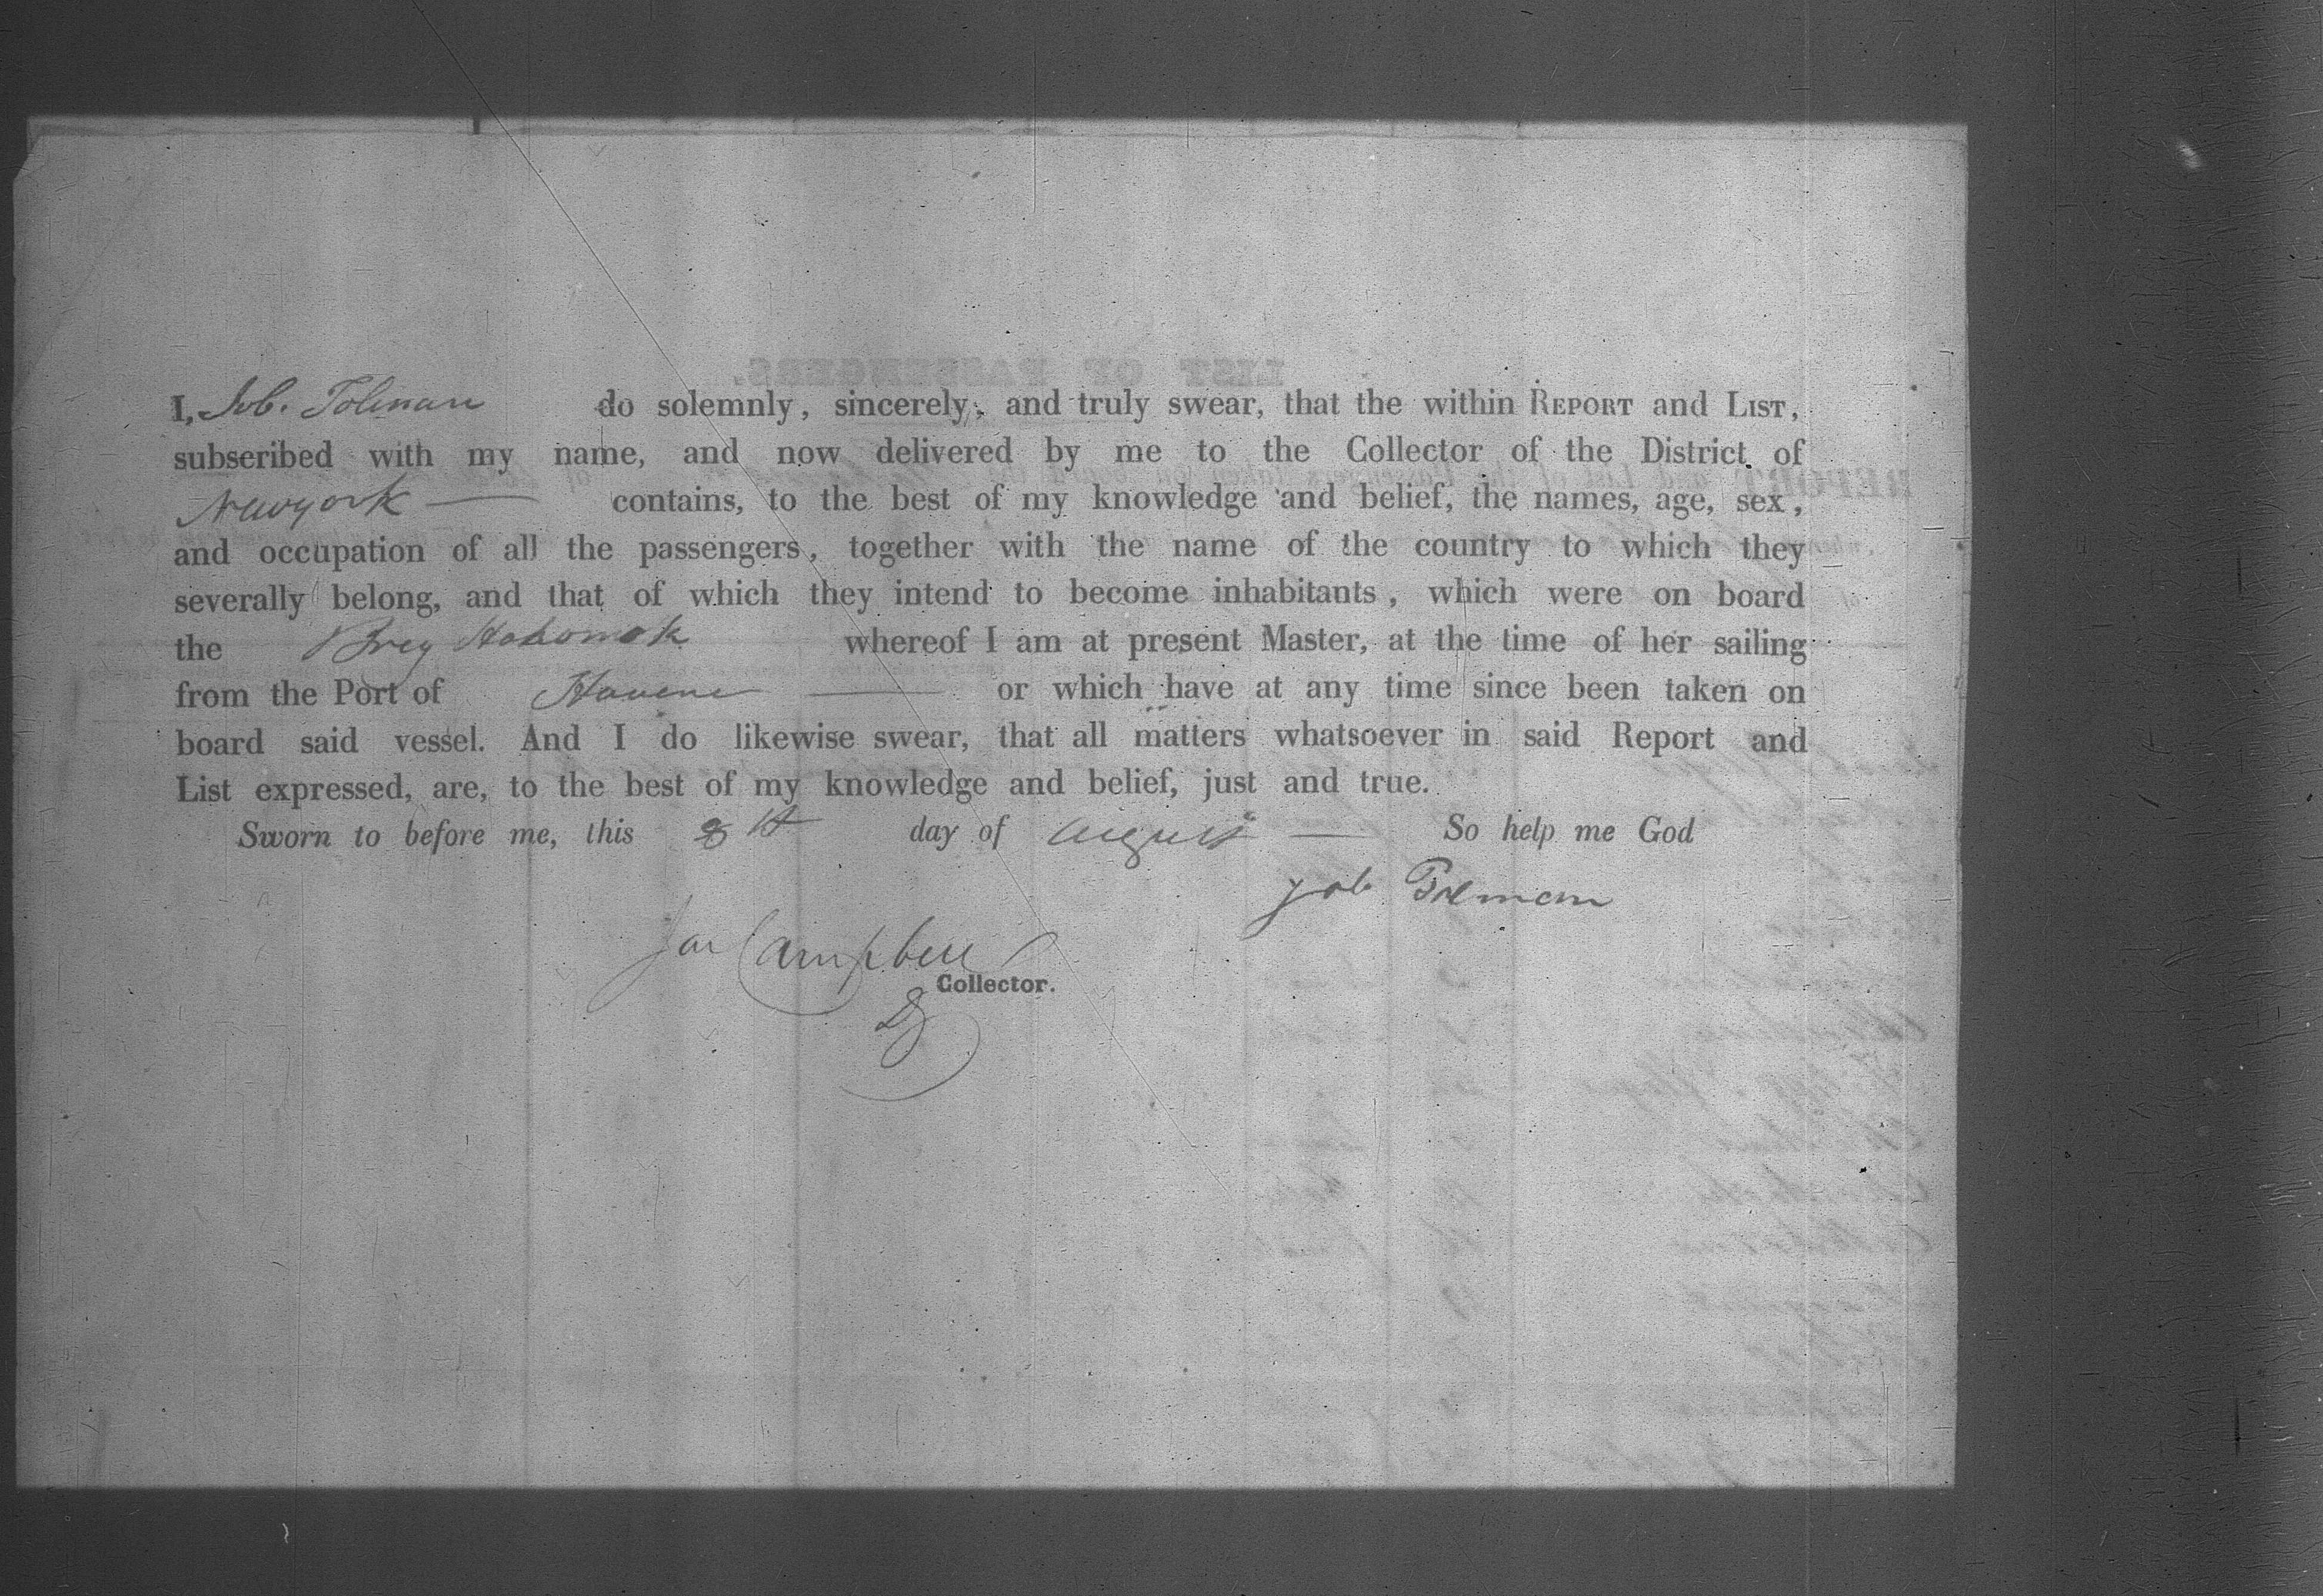 I, Job. Tolman do solemnly, sincerely, and truly swear, that the within REPORT and LIST,
subscribed with my name, and now delivered by me to the Collector of the District of
Newyork — contains, to the best of my knowledge and belief, the names, age, sex,
and occupation of all the passengers, together with the name of the country to which they
severally belong, and that of which they intend to become inhabitants, which were on board
the Breg Hobomok whereof I am at present Master, at the time of her sailing
from the Port of Havene — or which have at any time since been taken on
board said vessel. And I do likewise swear, that all matters whatsoever in said Report and
List expressed, are, to the best of my knowledge and belief, just and true.
Sworn to before me, this 8th day of August — So help me God
Job Tolman
Jas Campbell
Collector.